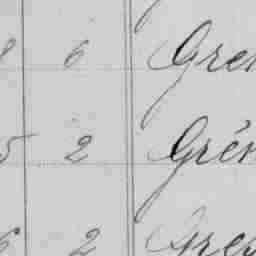 8 6 Gren
5 2 Grén
6 2 Gres